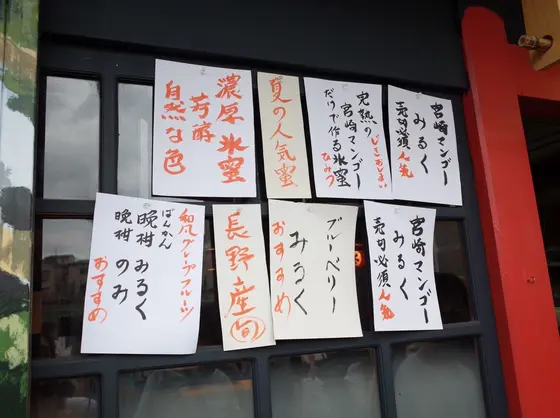 宮崎マンゴー
みるく
売切必須人気
じきおしまい
完熟の
宮崎マンゴー
だけで作る氷蜜
ひみつ
夏の人気蜜
濃厚氷蜜
芳醇
自然な色
宮崎マンゴー
みるく
売切必須人気
ブルーベリー
みるく
おすすめ
長野産旬
和風グレープフルーツ
ばんかん
晩柑みるく
晩柑のみ
おすすめ